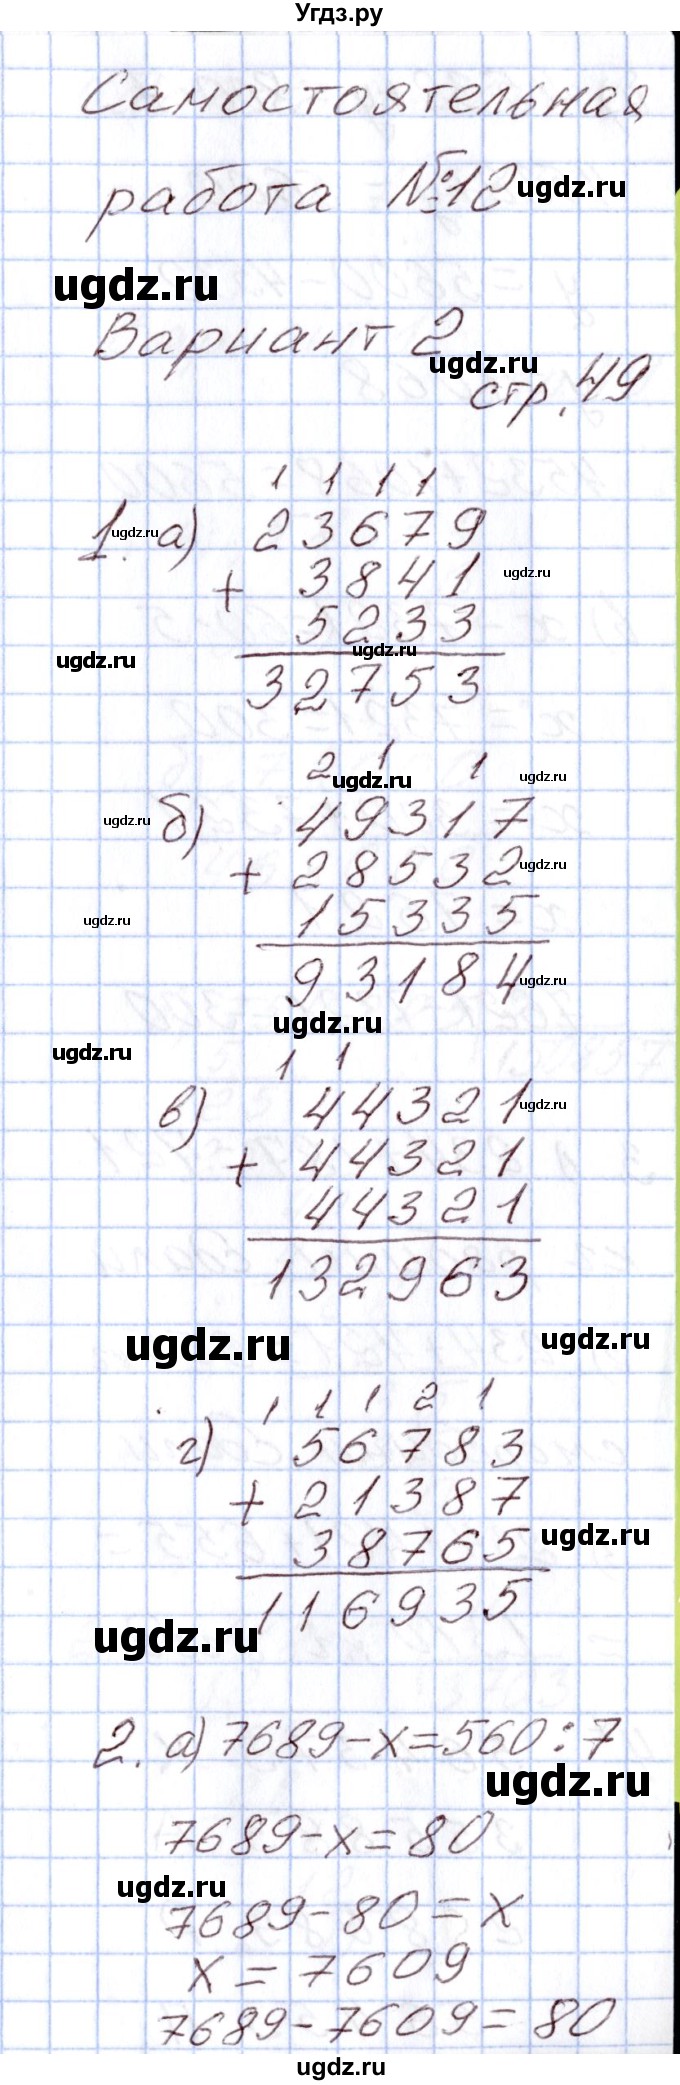 Угдз.ру
Самостоятельная
работа №12 ugdz.ru
ugdz.ru
Вариант 2
ugdz.ru
стр. 49
1 1 1 1
1. ugdz.ru а) 23679
+ 3841 ugdz.ru
5233
ugdz.ru ugdz.ru
32753
2 1 1 ugdz.ru
ugdz.ru
ugdz.ru б) 49317
+ 28532 ugdz.ru
ugdz.ru 15335
93184 ugdz.ru
ugdz.ru
ugdz.ru 1 1
в) 44321 ugdz.ru
+ 44321
44321
132963
ugdz.ru ugdz.ru
1 1 1 2 1
г) 56783
+ 21387
38765 ugdz.ru
116935
ugdz.ru
2. а) 7689-х=560:7
ugdz.ru
7689-х=80
ugdz.ru
7689-80=х
х=7609
7689-7609=80
ugdz.ru